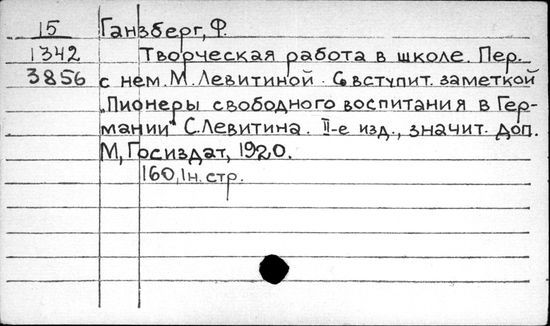 15 Ганзберг, Ф.
1342 Творческая работа в школе. Пер.
3856 с нем. М. Левитиной. С вступит. заметкой
„Пионеры свободного воспитания в Гер-
мании" С. Левитина. II-е изд., значит. доп.
М, Госиздат, 1920.
160, 1 н. стр.